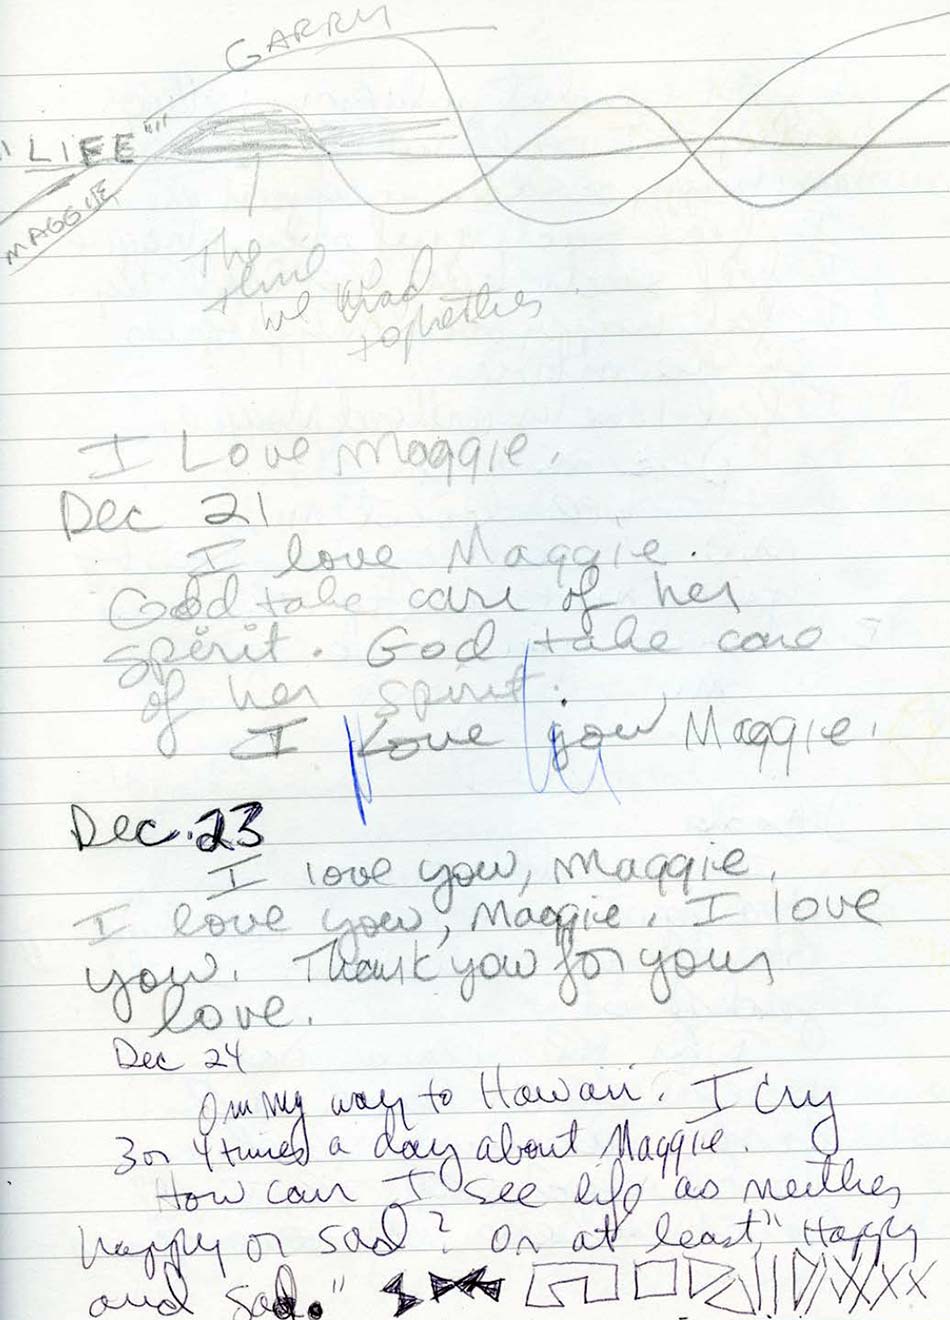 GARRY
"LIFE"
MAGGIE
The
time
we had
together
I Love Maggie.
Dec 21
I love Maggie.
God take care of her
spirit. God take care
of her spirit.
I Love you Maggie.
Dec. 23
I love you, Maggie.
I love you, Maggie. I love
you. Thank you for your
love.
Dec 24
On my way to Hawaii. I cry
3 or 4 times a day about Maggie.
How can I see life as neither
happy or sad? Or at least "Happy
and sad."